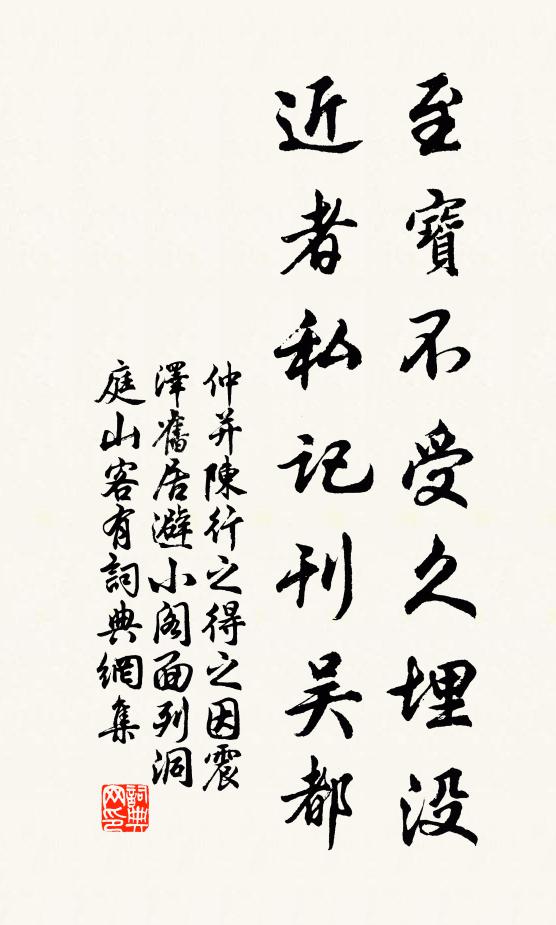 至寶不受久埋没
近者私記刊吴都
仲并陳行之得之因震
澤舊居避小阁面列洞
庭山客有詞典網集
詞典網印